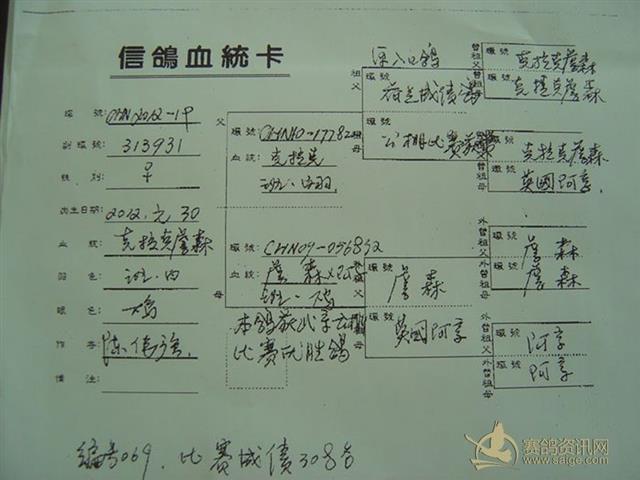 信鴿血統卡
環號 CHN2012-19
副環號 313931
性別 ♀
出生日期 2012.元.30
血統 克拉克詹森
羽色 斑.白
眼色 鸡
作者 陈伟強
備注
父
環號 CHN10-177826
血統 克拉克
斑.白羽
母
環號 CHN09-056892
血統 詹森×阿亨
斑.鸡
比赛优胜鸽
祖父
原入口鸽
祖母
外祖父
詹森
外祖母
英國阿亨
曾祖父 環號 克拉克詹森
曾祖母 環號 克拉克詹森
曾祖父 環號 克拉克詹森
曾祖母 環號 英國阿亨
外曾祖父 環號 詹森
外曾祖母 環號 詹森
外曾祖父 環號 阿亨
外曾祖母 環號 阿亨
编号069. 比赛成绩308名
赛鸽资讯网
www.saige.com